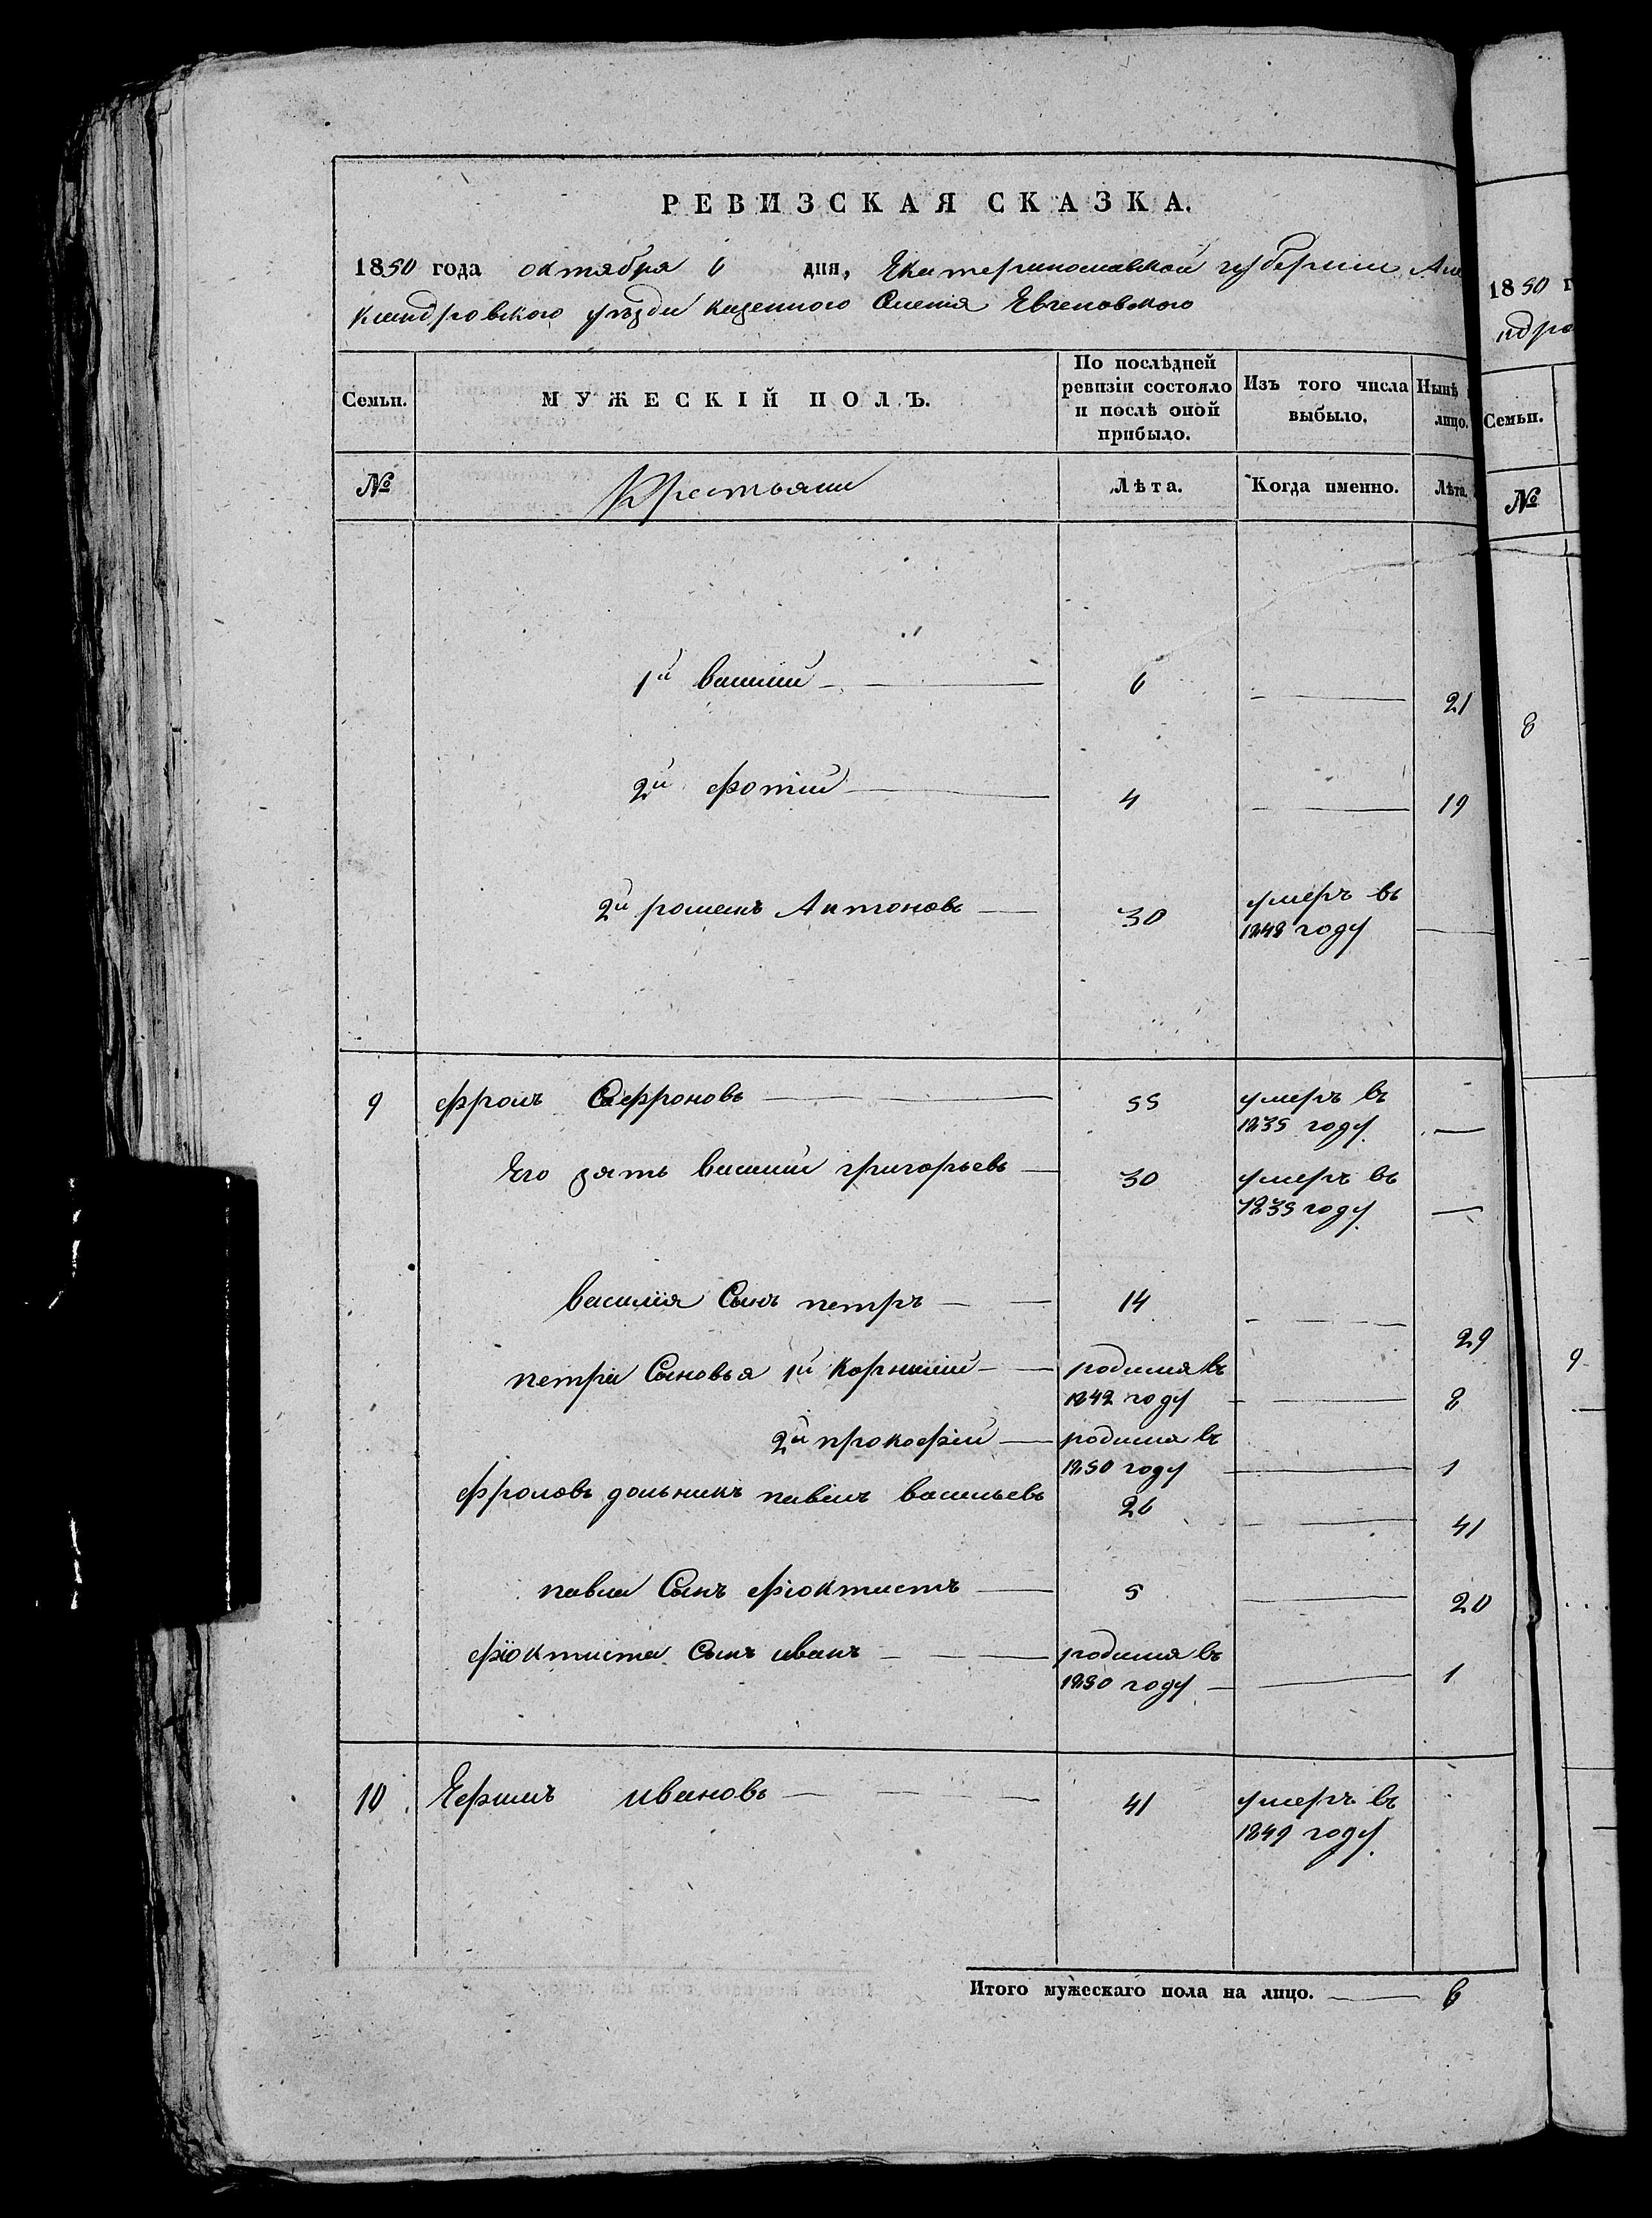 РЕВИЗСКАЯ СКАЗКА.
1850 года октября 6 дня, Екатеринославской губернии Але
ксандровского уезда казенного Селения Евченовского
Семьи.
МУЖЕСКІЙ ПОЛЪ.
По послѣдней ревизіи состояло и послѣ оной прибыло.
Изъ того числа выбыло.
Нынѣ
лицо.
№
Крестьяне
Лѣта.
Когда именно.
Лѣта.
1й василий 6 21
2й фотій 4 19
2й романъ Антоновъ 30 умеръ въ
1848 году
9 фролъ Сафроновъ 55 умеръ въ
1835 году
Его зять василий григорьевъ 30 умеръ въ
1835 году
василия Сынъ петръ 14 29
петра Сыновья 1й Корнилий родился въ
1842 году 8
2й прокофій родился въ
1850 году 1
фроловъ дольникъ павелъ васильевъ 26 41
павла Сынъ фіоктистъ 5 20
фіоктиста Сынъ иванъ родился въ
1850 году 1
10 Ефимъ ивановъ 41 умеръ въ
1849 году
Итого мужескаго пола на лицо. 6
1850 г
ндро
Семьи.
№
8
9